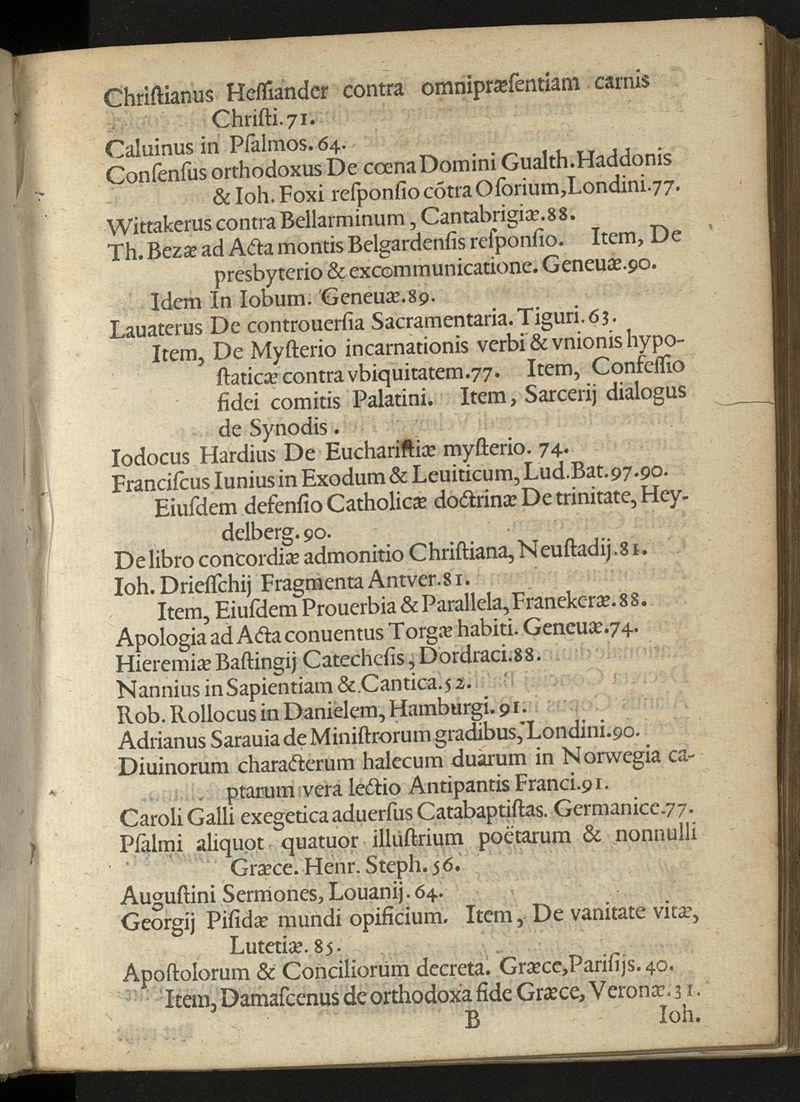 Chriſtianus Heſſiander contra omnipræſentiam carnis
Chriſti. 71.
Caluinus in Pſalmos. 64.
Conſenſus orthodoxus De cœna Domini Gualth. Haddonis
& Ioh. Foxi reſponſio cõtra Oſorium, Londini. 77.
Wittakerus contra Bellarminum, Cantabrigiæ. 88.
Th. Bezæ ad Acta montis Belgardenſis reſponſio. Item, De
presbyterio & excommunicatione. Geneuæ. 90.
Idem In Iobum. Geneuæ. 89.
Lauaterus De controuerſia Sacramentaria. Tiguri. 63.
Item, De Myſterio incarnationis verbi & vnionis hypo-
ſtaticæ contra vbiquitatem. 77. Item, Confeſſio
fidei comitis Palatini. Item, Sarcerij dialogus
de Synodis.
Iodocus Hardius De Euchariſtiæ myſterio. 74.
Franciſcus Iunius in Exodum & Leuiticum, Lud. Bat. 97. 90.
Eiuſdem defenſio Catholicæ doctrinæ De trinitate, Hey-
delberg. 90.
De libro concordiæ admonitio Chriſtiana, Neuſtadij. 81.
Ioh. Drieſſchij Fragmenta Antver. 81.
Item, Eiuſdem Prouerbia & Parallela, Franekeræ. 88.
Apologia ad Acta conuentus Torgæ habiti. Geneuæ. 74.
Hieremiæ Baſtingij Catecheſis, Dordraci. 88.
Nannius in Sapientiam & Cantica. 52.
Rob. Rollocus in Danielem, Hamburgi. 91.
Adrianus Sarauia de Miniſtrorum gradibus, Londini. 90.
Diuinorum characterum halecum duarum in Norwegia ca-
ptarum vera lectio Antipantis Franci. 91.
Caroli Galli exegetica aduerſus Catabaptiſtas. Germanice. 77.
Pſalmi aliquot quatuor illuſtrium poëtarum & nonnulli
Græce. Henr. Steph. 56.
Auguſtini Sermones, Louanij. 64.
Georgij Piſidæ mundi opificium. Item, De vanitate vitæ,
Lutetiæ. 85.
Apoſtolorum & Conciliorum decreta. Græce, Pariſijs. 40.
Item, Damaſcenus de orthodoxa fide Græce, Veronæ. 31.
B Ioh.